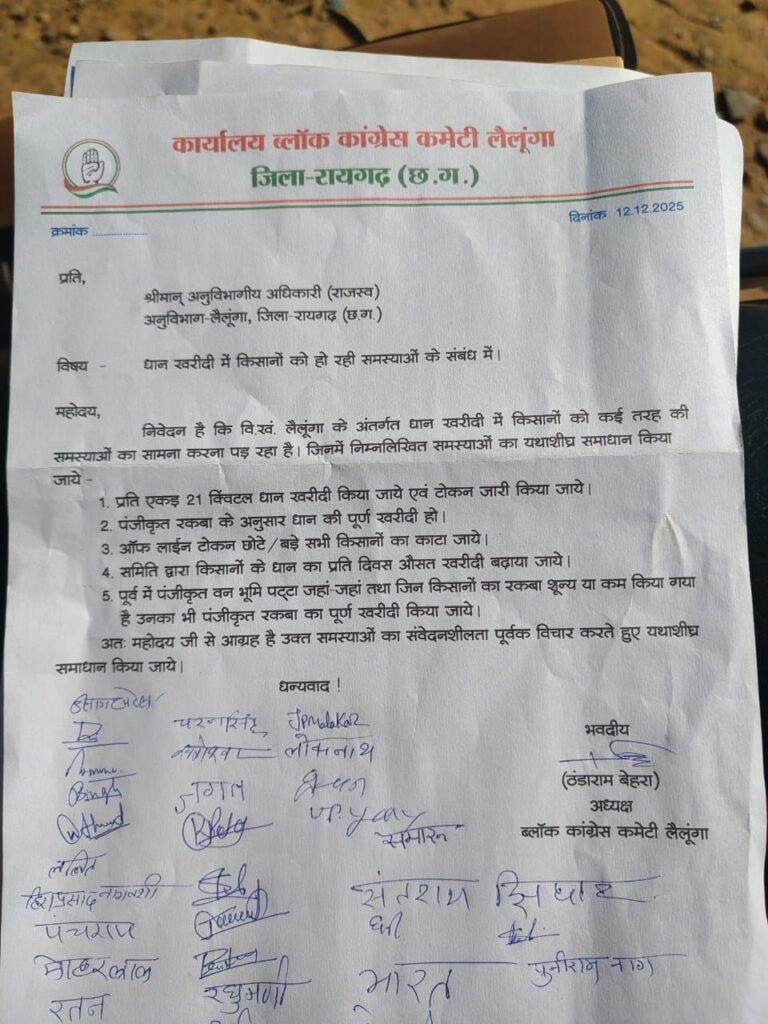 कार्यालय ब्लॉक कांग्रेस कमेटी लैलूंगा
जिला-रायगढ़ (छ.ग.)
क्रमांक ..............
दिनांक 12.12.2025
प्रति,
श्रीमान् अनुविभागीय अधिकारी (राजस्व)
अनुविभाग-लैलूंगा, जिला-रायगढ़ (छ.ग.)
विषय - धान खरीदी में किसानों को हो रही समस्याओं के संबंध में।
महोदय,
निवेदन है कि वि.खं. लैलूंगा के अंतर्गत धान खरीदी में किसानों को कई तरह की
समस्याओं का सामना करना पड़ रहा है। जिनमें निम्नलिखित समस्याओं का यथाशीघ्र समाधान किया
जाये -
1. प्रति एकड़ 21 क्विंटल धान खरीदी किया जाये एवं टोकन जारी किया जाये।
2. पंजीकृत रकबा के अनुसार धान की पूर्ण खरीदी हो।
3. ऑफ लाईन टोकन छोटे/बड़े सभी किसानों का काटा जाये।
4. समिति द्वारा किसानों के धान का प्रति दिवस औसत खरीदी बढ़ाया जाये।
5. पूर्व में पंजीकृत वन भूमि पट्टा जहां-जहां तथा जिन किसानों का रकबा शून्य या कम किया गया
है उनका भी पंजीकृत रकबा का पूर्ण खरीदी किया जाये।
अतः महोदय जी से आग्रह है उक्त समस्याओं का संवेदनशीलता पूर्वक विचार करते हुए यथाशीघ्र
समाधान किया जाये।
धन्यवाद !
भवदीय
(ठंडाराम बेहरा)
अध्यक्ष
ब्लॉक कांग्रेस कमेटी लैलूंगा
चरनसिंह JPMalakar
लोकनाथ
जगत
ललित
संतराम
पंचराम
भारत
पुनीराम नाग
रतन रघुमणी